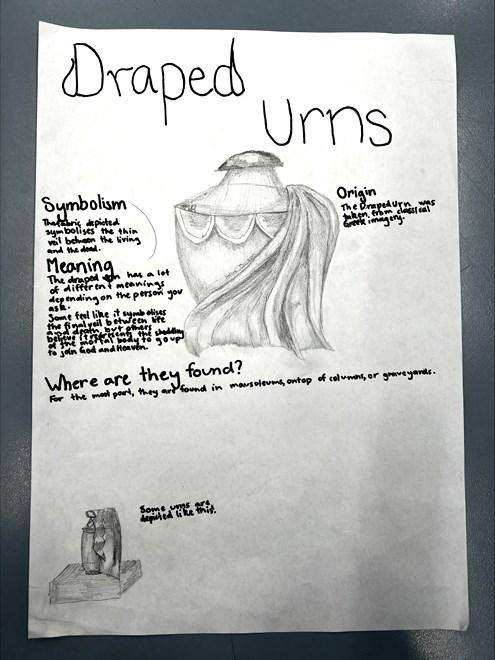 Draped
Urns
Symbolism
The fabric depicted
symbolises the thin
veil between the living
and the dead.
Meaning
The draped urn has a lot
of different meanings
depending on the person you
ask.
Some feel like it symbolises
the final veil between life
and death, but others
believe it represents the shedding
of the mortal body to go up
to join God and Heaven.
Origin
The Draped Urn was
taken from classical
Greek imagery.
Where are they found?
For the most part, they are found in mausoleums, ontop of columns, or graveyards.
Some urns are
depicted like this.